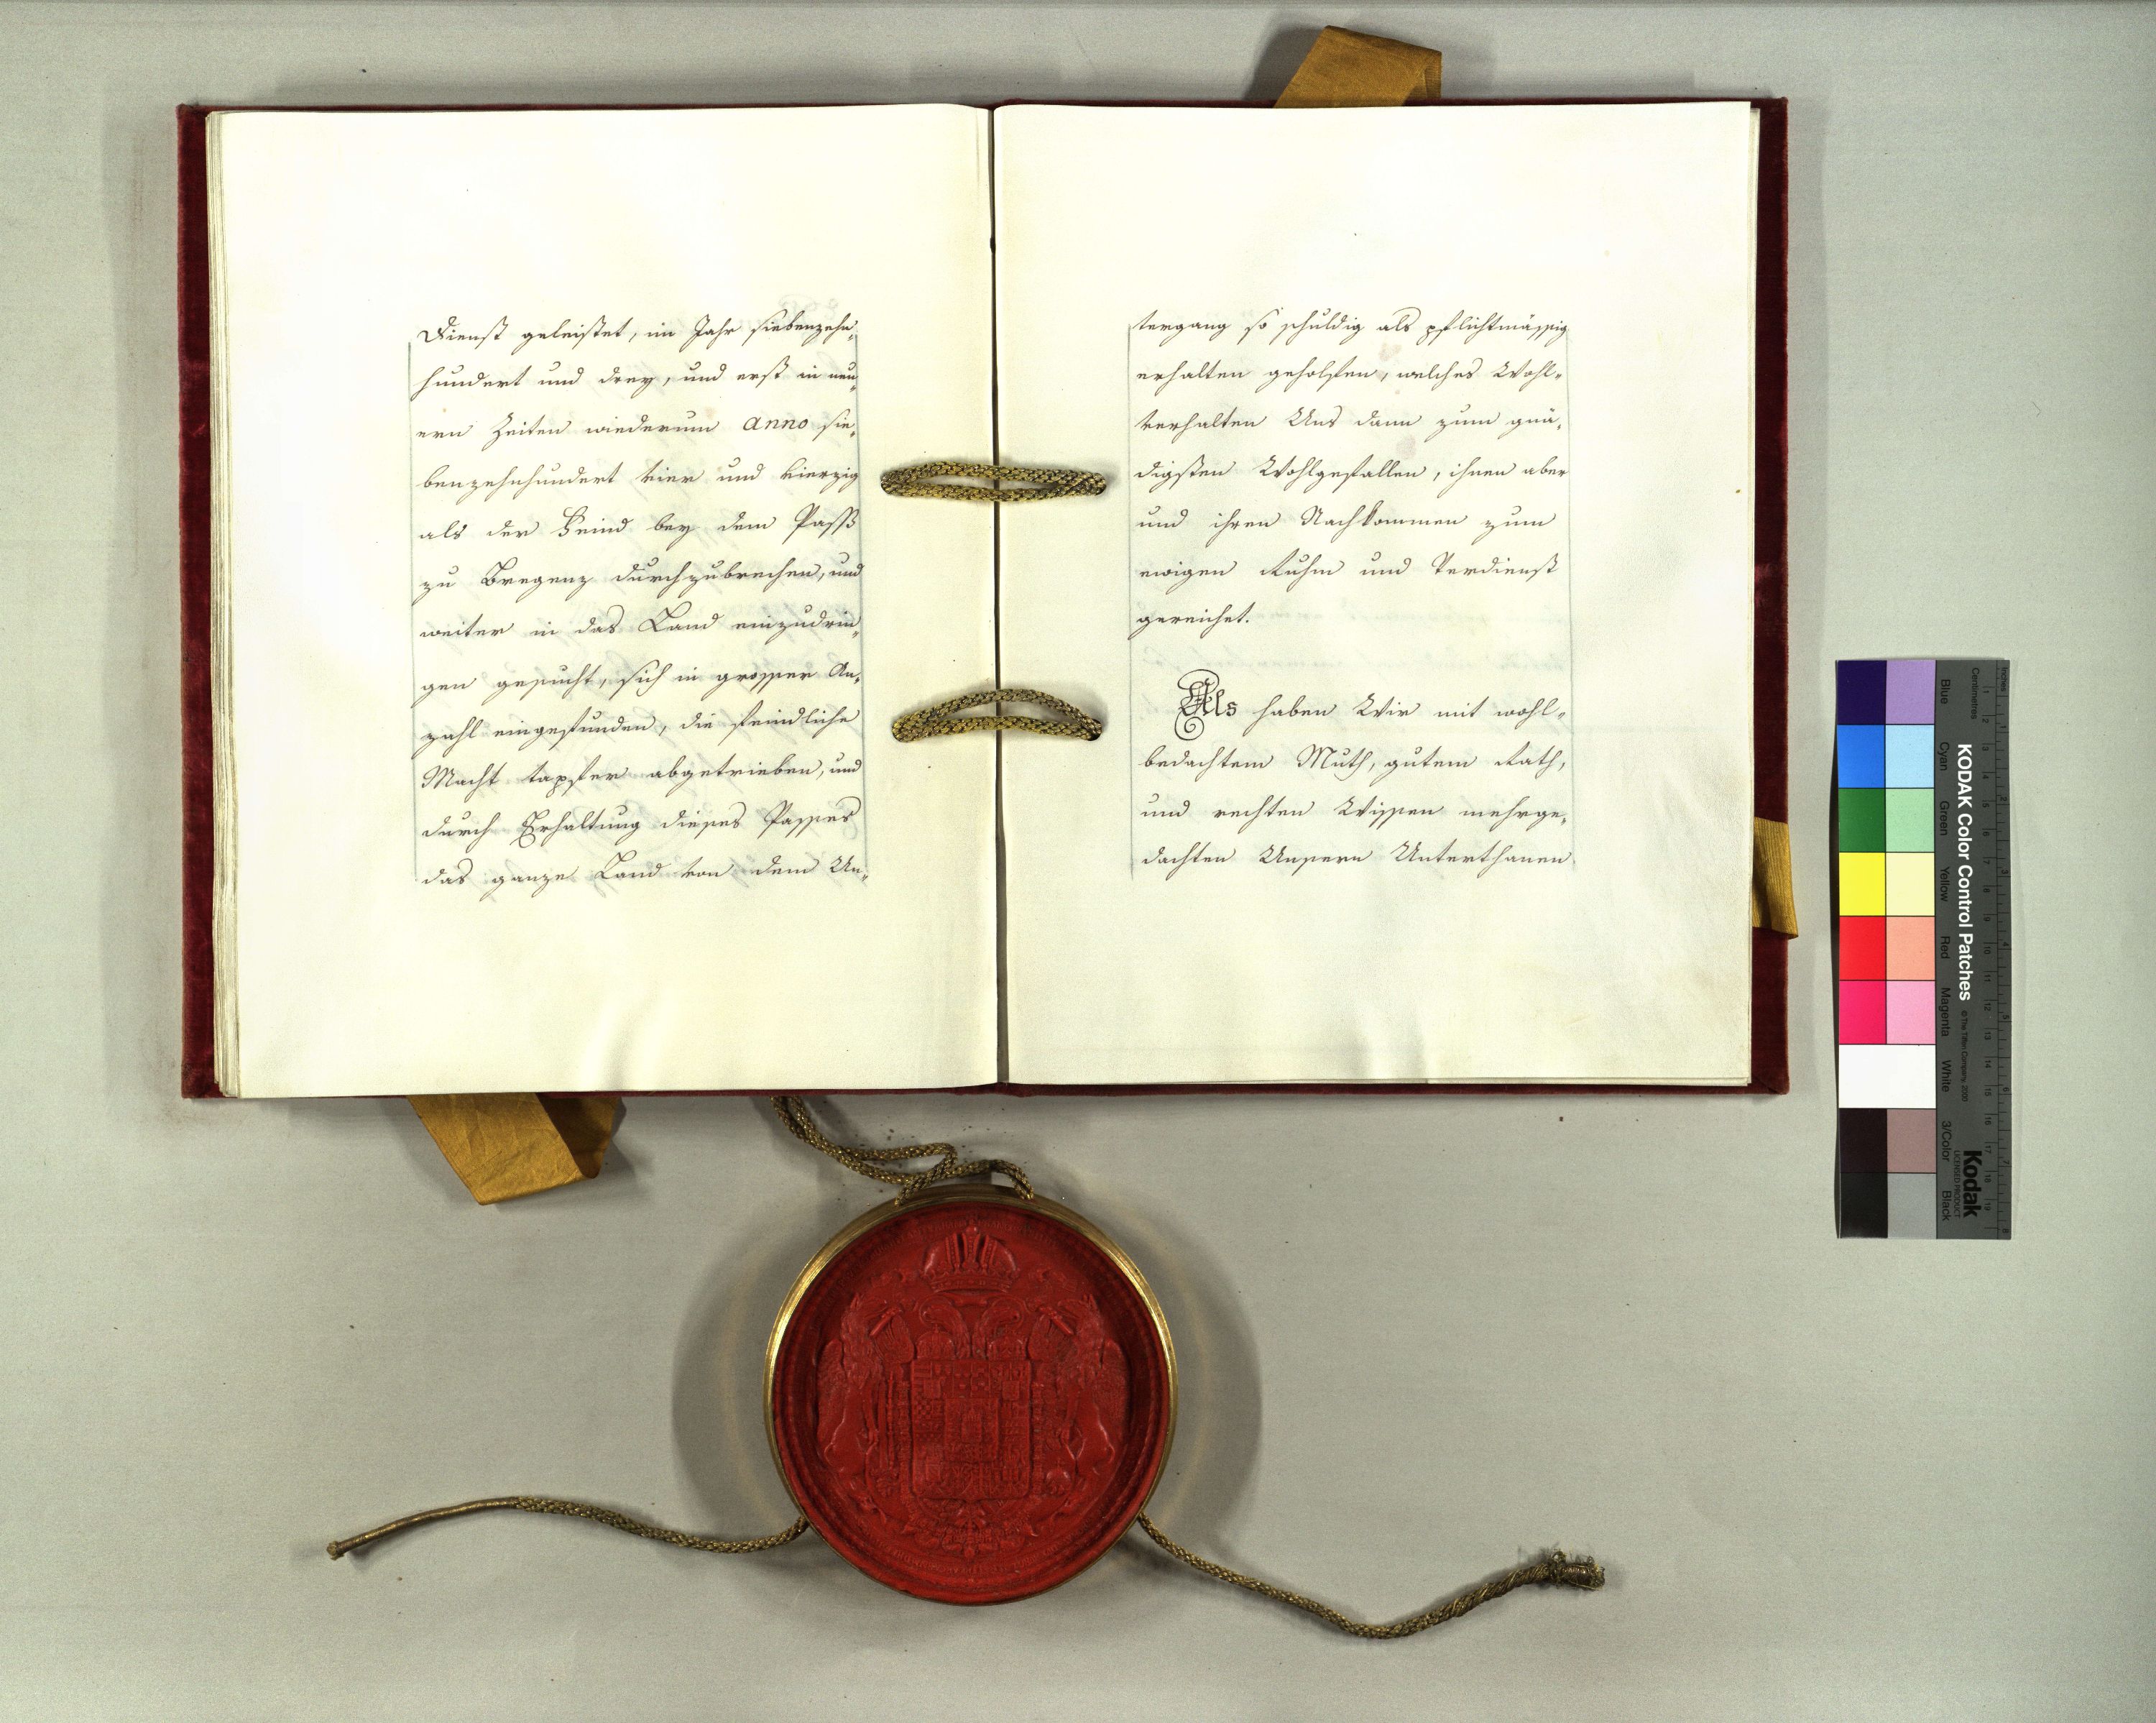 Dienst geleistet, im Jahr siebenzehn„
hundert und drey, und erst in neu„
ern Zeiten wiederum anno sie„
benzehnhundert vier und vierzig
als der Feind bey dem Pass
zu Bregenz durchzubrechen, und
weiter in das Land einzudrin„
gen gesucht, sich in grosser An„
zahl eingefunden, die feindliche
Macht tapfer abgetrieben, und
durch Erhaltung dieses Passes
das ganze Land von dem Un„
tergang so schuldig als pflichtmässig
erhalten geholfen, welches Wohl„
verhalten Uns dann zum gnä„
digsten Wohlgefallen, ihnen aber
und ihren Nachkommen zum
ewigen Ruhm und Verdienst
gereichet.
Als haben Wir mit wohl„
bedachtem Muth, gutem Rath,
und rechten Wissen mehrge„
dachten Unsern Unterthanen
KODAK Color Control Patches
© The Tiffen Company, 2000
Kodak
LICENSED PRODUCT
Inches
Centimetres
Blue
Cyan
Green
Yellow
Red
Magenta
White
3/Color
Black
1 2 3 4 5 6 7 8
1 2 3 4 5 6 7 8 9 10 11 12 13 14 15 16 17 18 19